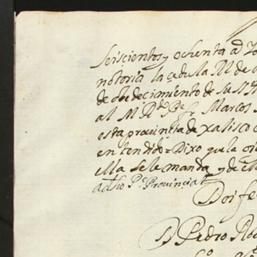 seiscientos y ochenta a
notoria la çedula Rl de
de obedecimiento de Su
al M R Pe F Marcos
esta prouincia de xalisco
entendido Dixo que la o
ella se le manda y de
a dho Pe Prouincial
Doi fe
D Pedro